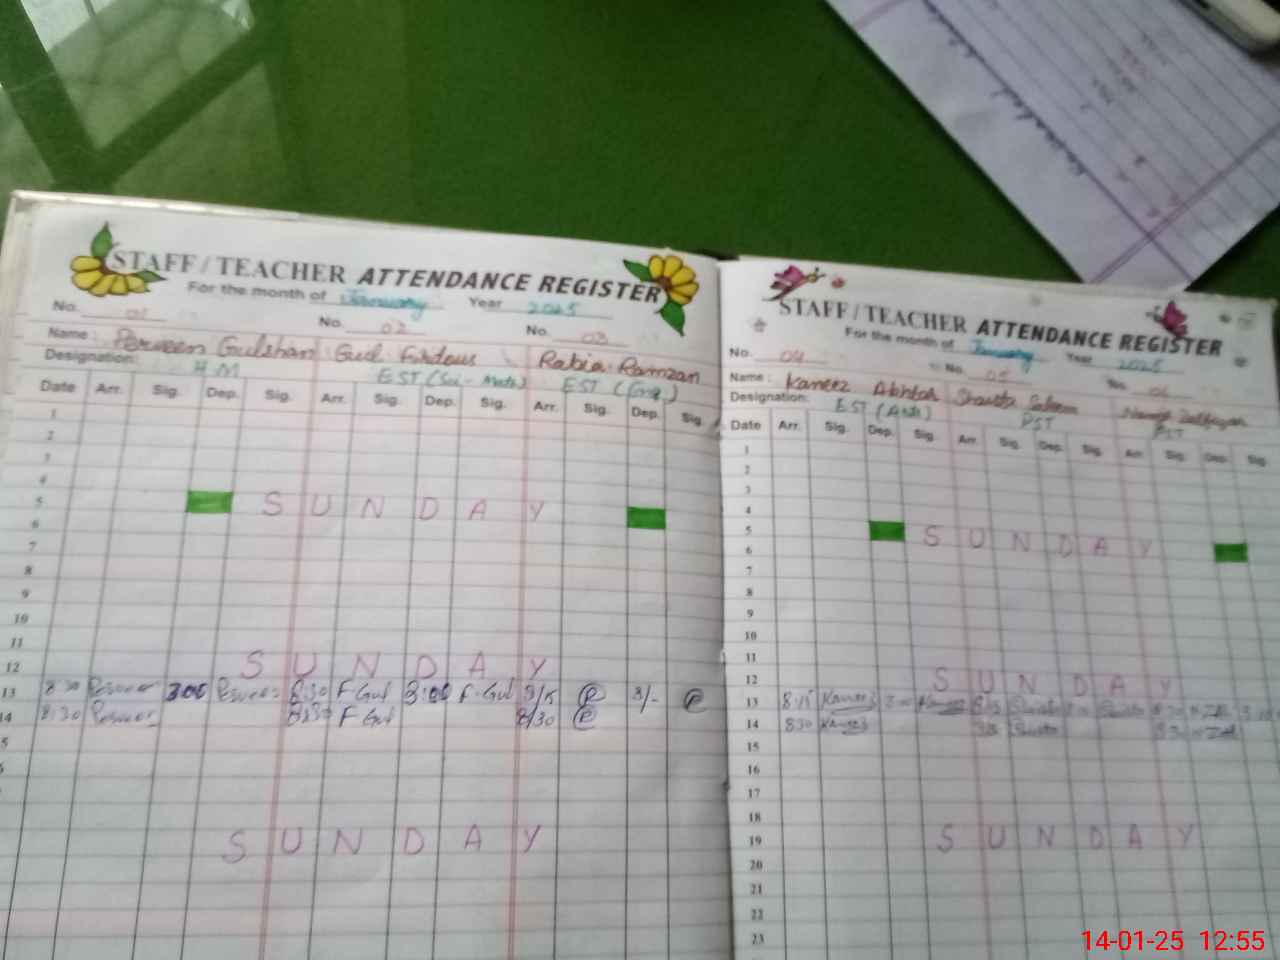 STAFF / TEACHER ATTENDANCE REGISTER
For the month of January Year 2025
No. 01 No. 02 No. 03
Name: Perween Gulshan Gul Firdous Rabia Ramzan
Designation: H.M EST (Sci-Math) EST (Eng)
Date Arr. Sig. Dep. Sig. Arr. Sig. Dep. Sig. Arr. Sig. Dep. Sig.
1
2
3
4
5 SUNDAY
6
7
8
9
10
11
12 SUNDAY
13 8:30 3:00 8:30 F Gul 3:00 F. Gul 3/-
14 8:30 8:30 F Gul 8/30
5
SUNDAY
STAFF / TEACHER ATTENDANCE REGISTER
For the month of January Year 2025
No. 04 No. 05 No. 06
Name: Kaneez Akhtar
Designation: EST (Arts) PST PST
Date Arr. Sig. Dep. Sig. Arr. Sig. Dep. Sig. Arr. Sig. Dep. Sig.
1
2
3
4
5 SUNDAY
6
7
8
9
10
11
12 SUNDAY
13 8:15 Kaneez Kaneez
14 830 Kaneez
15
16
17
18
19 SUNDAY
20
21
22
23
14-01-25 12:55